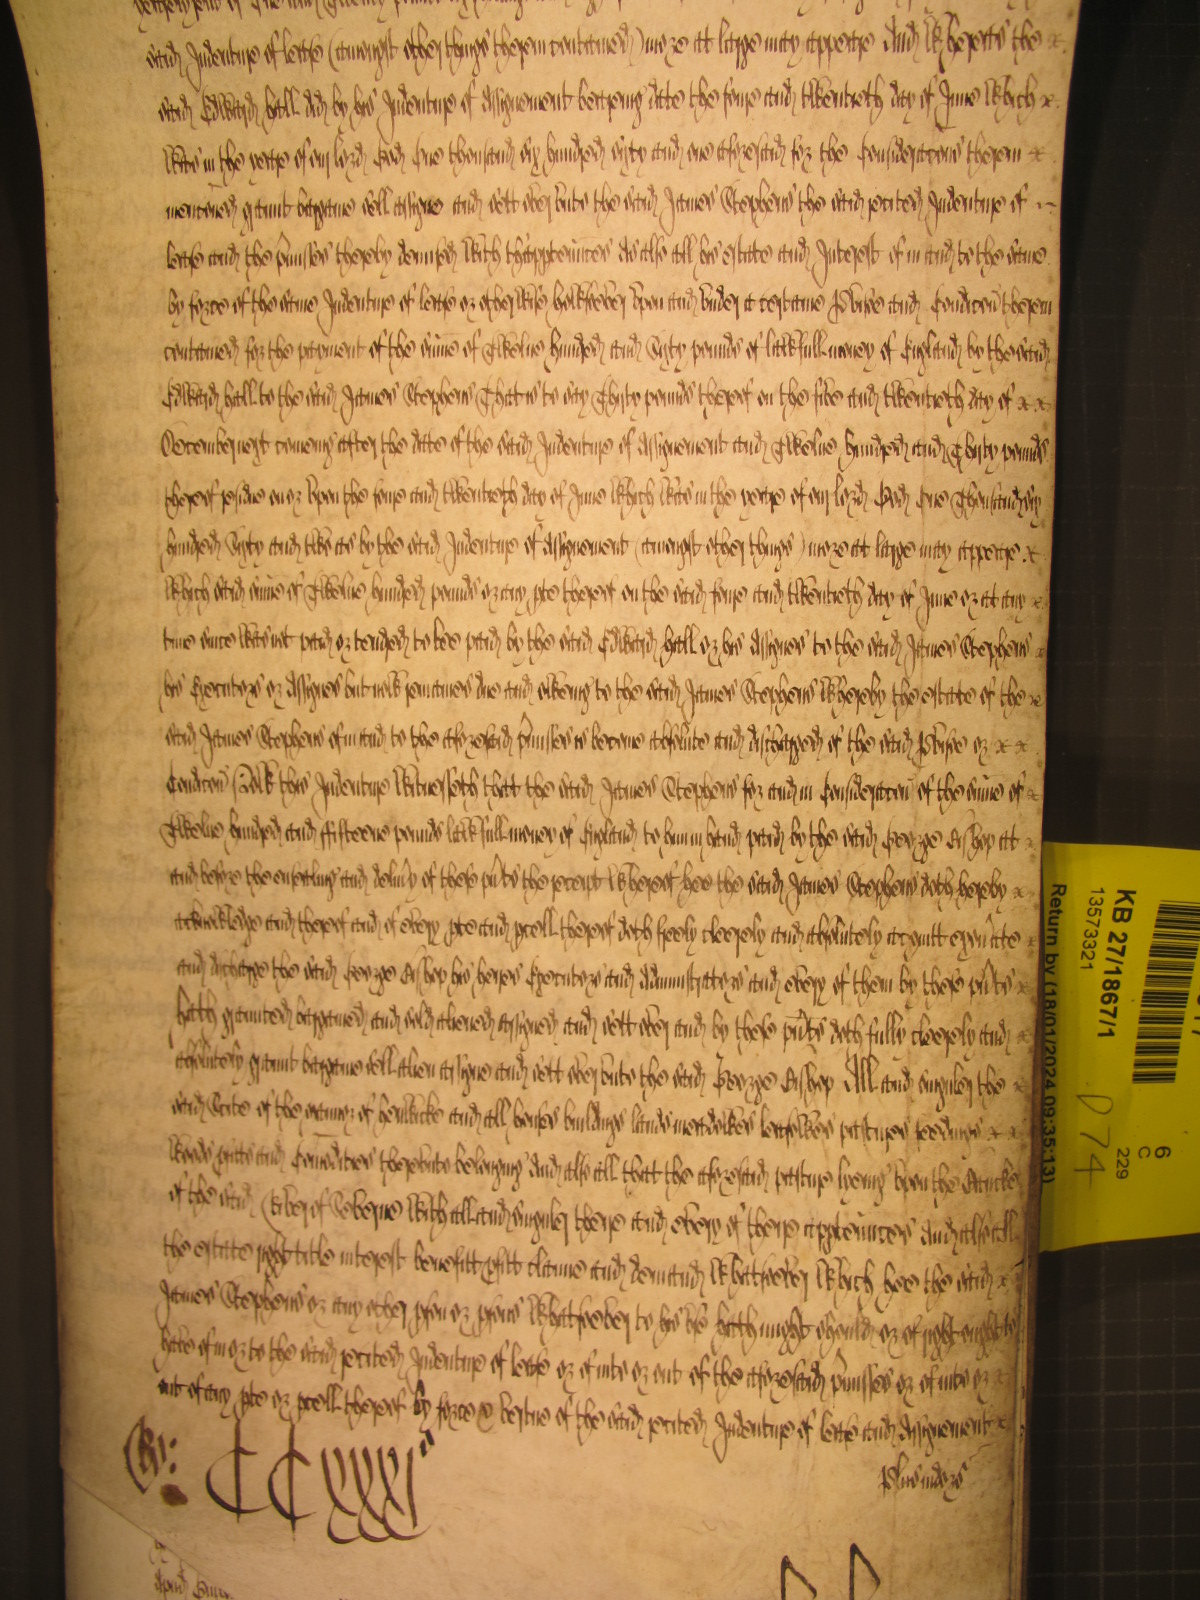 said Indenture of lease (amongst other things therein contained) more at large may appeare And Whereas the
said Edward Hall did by his Indenture of Assignement bearing date the fower and twentieth day of June which
was in the yeare of our Lord God One thousand six hundred sixty and one aforesaid for the Consideracons therein
menconed graunt bargaine sell assigne and sett over unto the said James Stephens the said recited Indenture of
lease and the p'misses thereby demised with th'appten'nces As alsoe all his estate and Interest of in and to the same
by force of the same Indenture of lease or otherwise howsoever upon and under a certaine P'viso and Condicon therein
contained for the payment of the sume of Twelve hundred and Sixty pounds of lawfull money of England by the said
Edward Hall to the said James Stephens That is to say Thirty pounds thereof on the five and twentieth day of
December next comeing after the date of the said Indenture of Assignement and Twelve hundred and Thirty pounds
thereof residue on or upon the fower and twentieth day of June which was in the yeare of our Lord God One Thousand six
hundred Sixty and two as by the said Indenture of Assignement (amongst other things) more at large may appeare
Which said sume of Twelve hundred pounds or any p'te thereof on the said fower and twentieth day of June or at any
time since was not paid or tendred to bee paid by the said Edward Hall or his Assignes to the said James Stephens
his Executors or Assignes but now remaines due and oweing to the said James Stephens whereby the estate of the
said James Stephens of in and to the aforesaid p'misses is become absolute and discharged of the said P'viso or
Condicon Now this Indenture Witnesseth that the said James Stephens for and in Consideracon of the sume of
Twelve hundred and ffifteene pounds lawfull money of England to him in hand paid by the said George Bishop att
and before the ensealing and deliv'y of these p'nts the receipt whereof hee the said James Stephens doth hereby
acknowledge and thereof and of every p'te and p'cell thereof doth freely cleerely and absolutely acquitt exon'ate
and discharge the said George Bishop his heires Executors and Administrators and every of them by these p'nts
hath graunted bargained and sold aliened assigned and sett over and by these p'nts doth fully cleerely and
absolutely graunt bargaine sell alien assigne and sett over unto the said George Bishop All and singuler the
said Scite of the Mannor of and all houses buildings lands meadowes leasowes pastures feedings
woods and Comodities thereunto belonging And alsoe all that the aforesaid pasture lyeing upon the Bancke
of the said River of Seberne With all and singuler there and every of there appten'nces And alsoe all
the estate right title interest benefitt p'fitt claime and demand whatsoever which hee the said
James Stephens or any other p'son or p'sons whatsoever to his use hath might should or of right ought to
have of in or to the said recited Indenture of lease or of into or out of the aforesaid p'misses or of into or
out of any p'te or p'cell thereof by force & vertue of the said recited Indenture of lease and Assignement
Ro: CCxxxj
plus inders
KB 27/1867/1
13573321
Return by (18/01/2024 09:35:13)
6
C
229
D 74